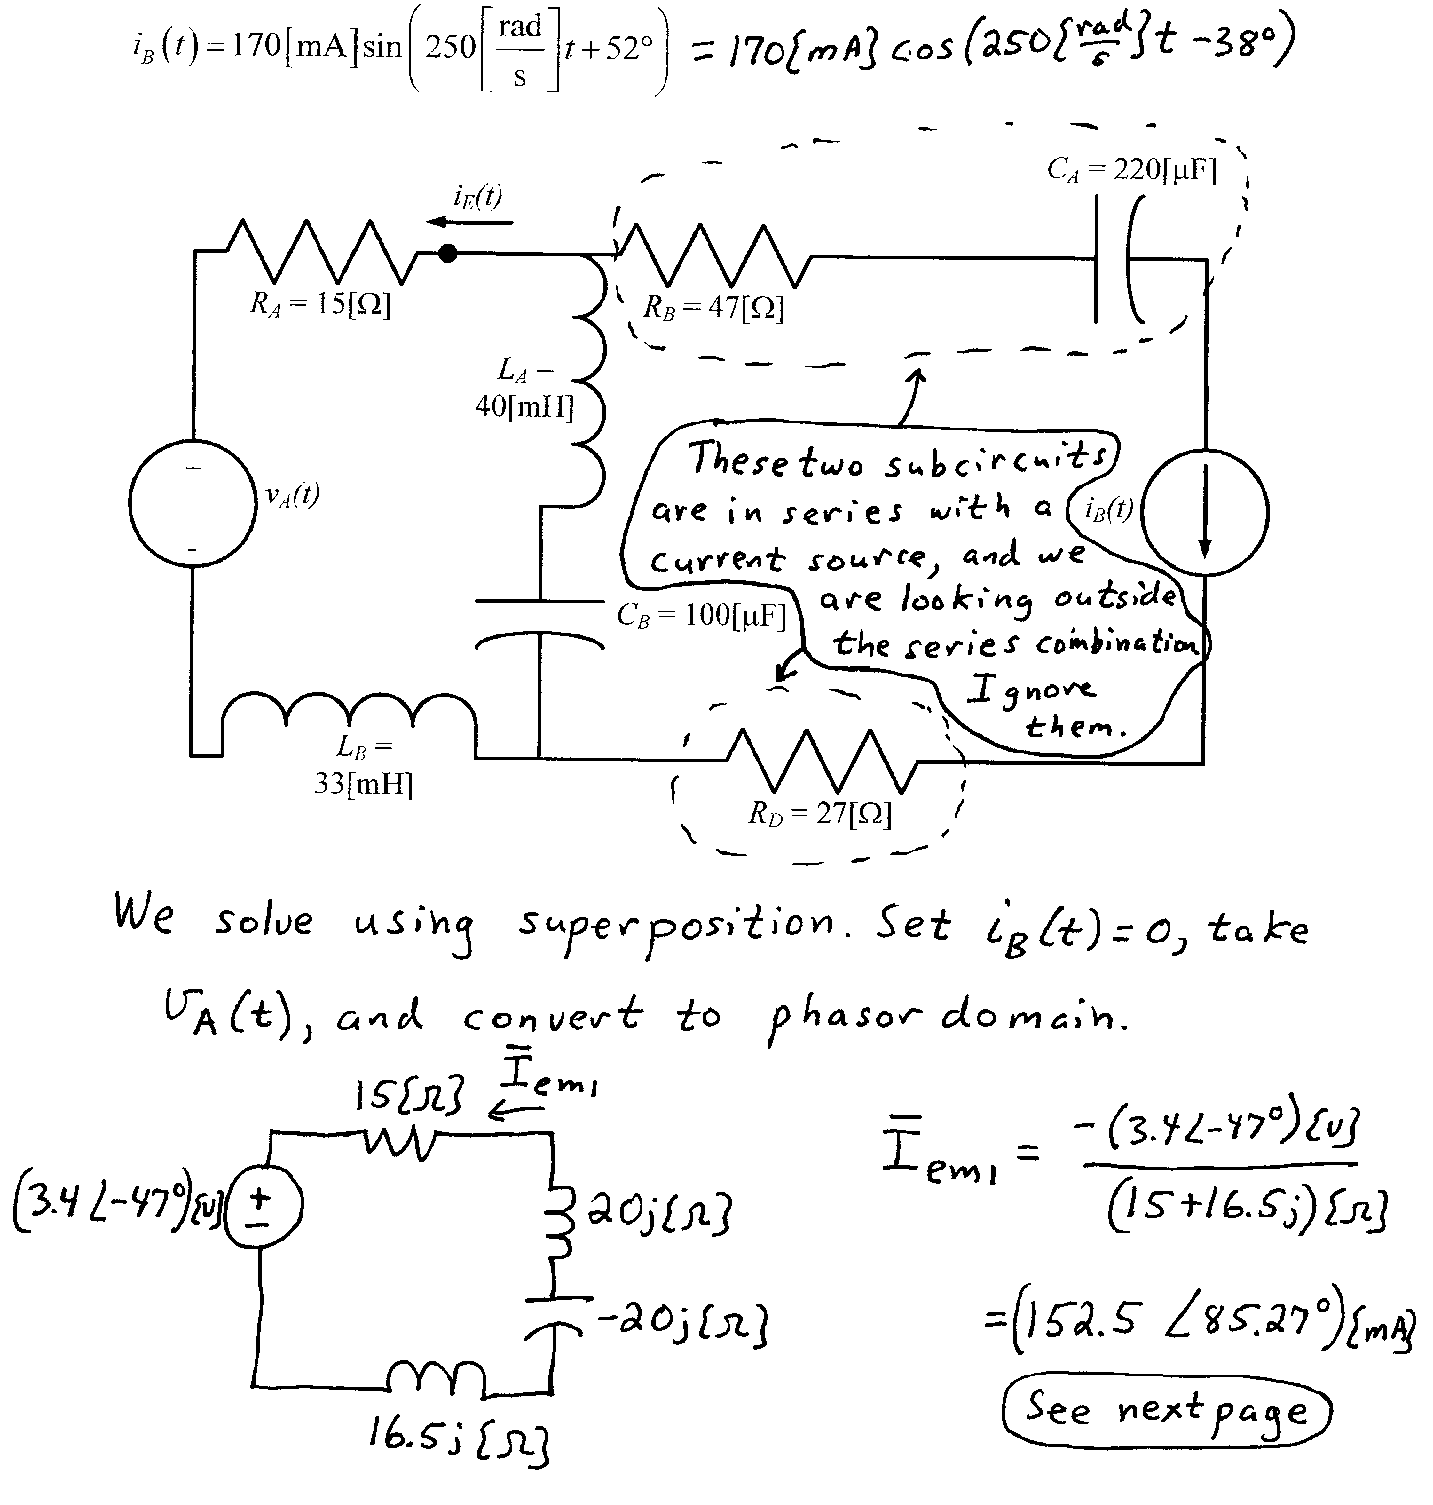 i_B(t) = 170[mA]sin(250[rad/s]t + 52°) = 170{mA} cos(250{rad/s}t - 38°)
C_A = 220[μF]
i_E(t)
R_A = 15[Ω]
R_B = 47[Ω]
L_A =
40[mH]
These two subcircuits
are in series with a
current source, and we
are looking outside
the series combination
Ignore
them.
v_A(t)
i_B(t)
C_B = 100[μF]
L_B =
33[mH]
R_D = 27[Ω]
We solve using superposition. Set i_B(t) = 0, take
v_A(t), and convert to phasor domain.
15{Ω}
I̅_em1
(3.4∠-47°){v}
+
-
20j{Ω}
-20j{Ω}
16.5j{Ω}
I̅_em1 = -(3.4∠-47°){v} / (15+16.5j){Ω}
= (152.5 ∠85.27°){mA}
See next page